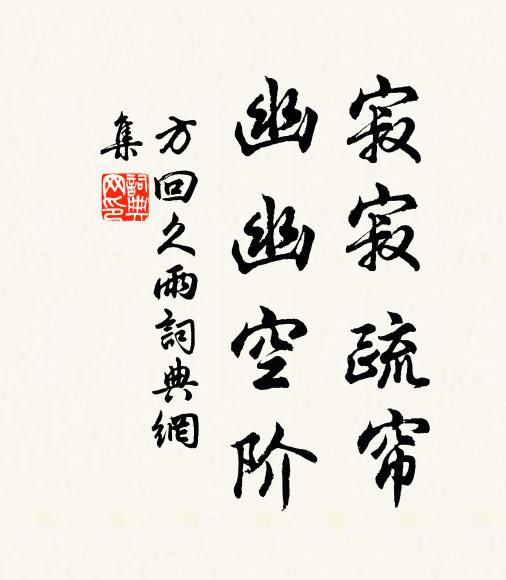 寂寂疏帘
幽幽空阶
方回久雨詞典網
集
詞典网印